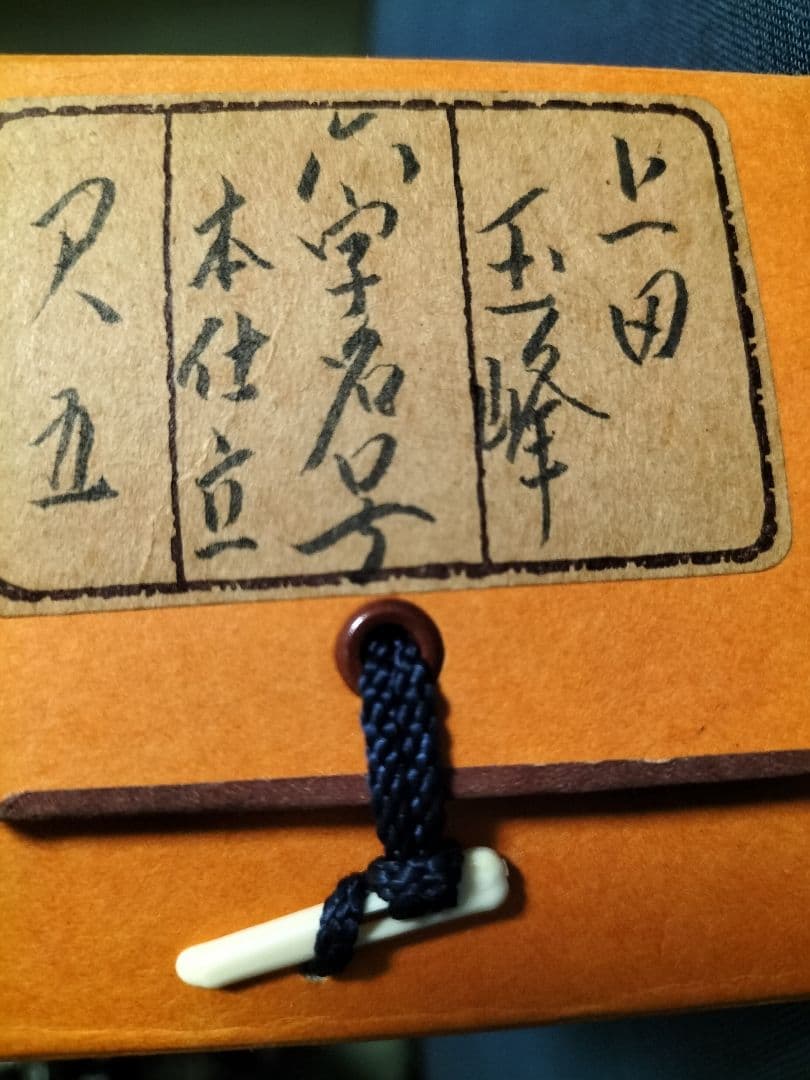 上田
玉峰
六字名号
本仕立
尺五